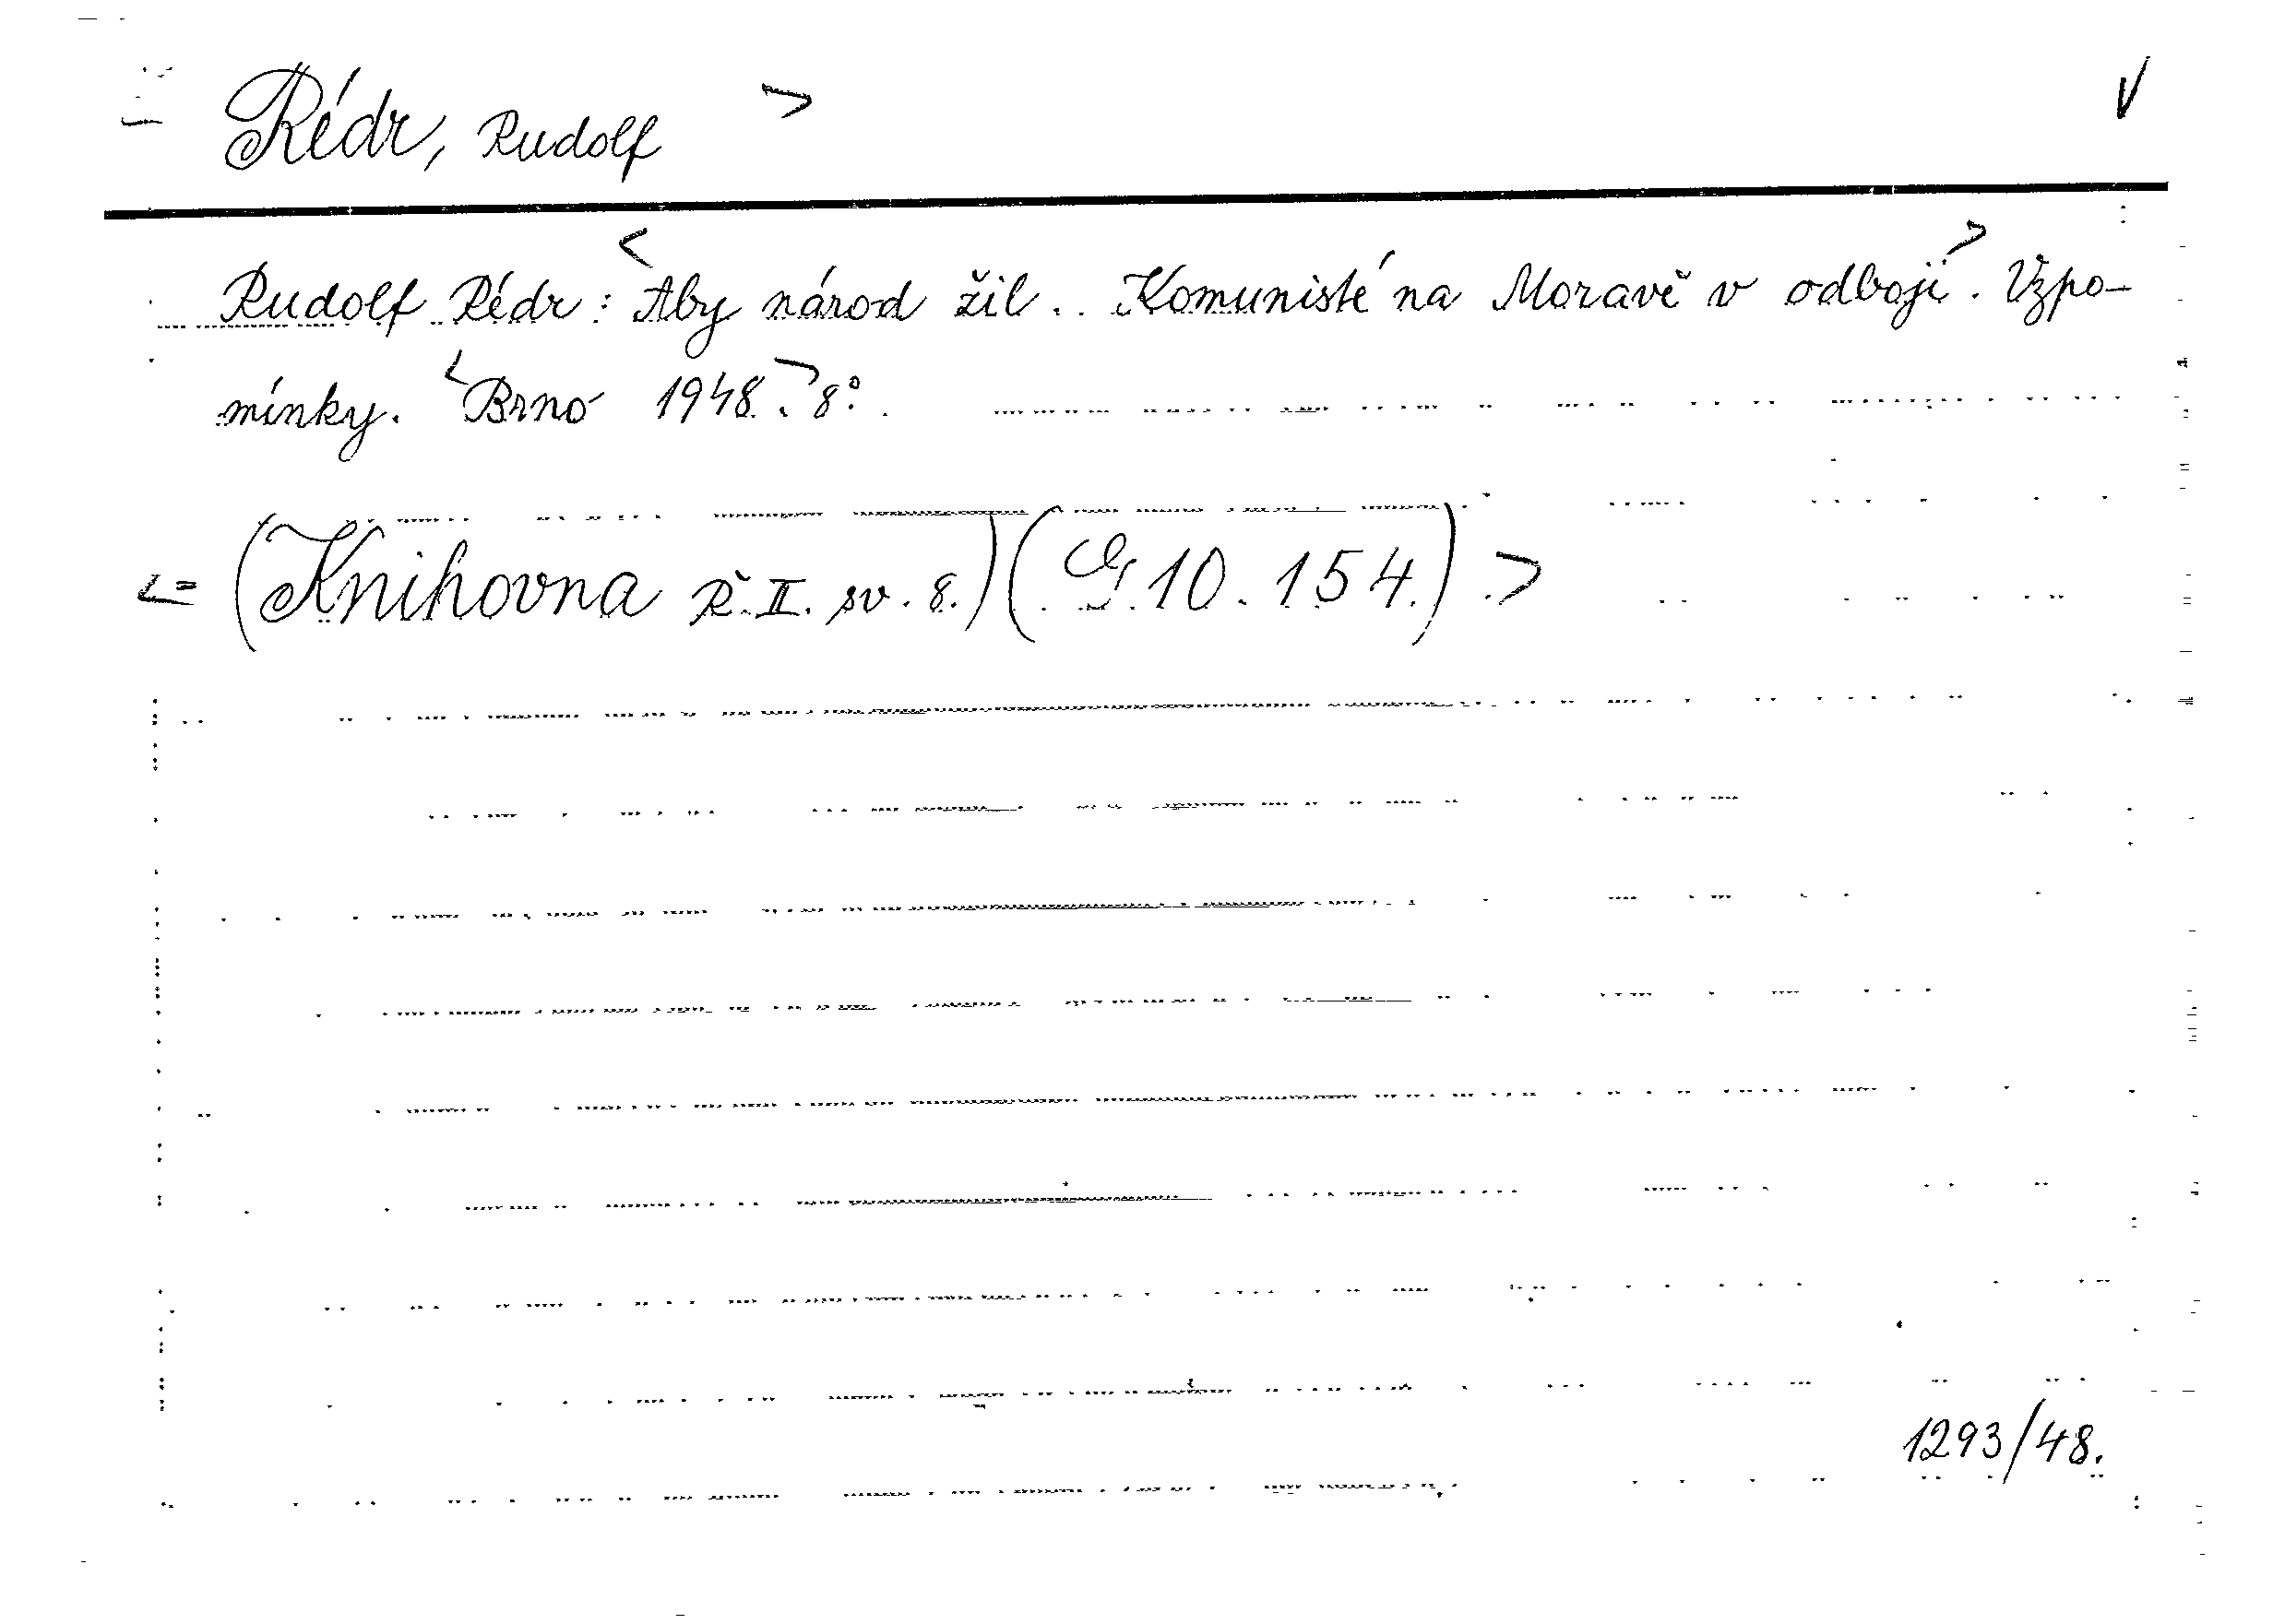 Rédr, Rudolf > V
Rudolf Rédr: <Aby národ žil.. Komunisté na Moravě v odboji>. Vzpo-
mínky. <Brno 1948.> 8°.
<= (Knihovna Ř. II. sv. 8.) (G 10. 154.) >
1293/48.